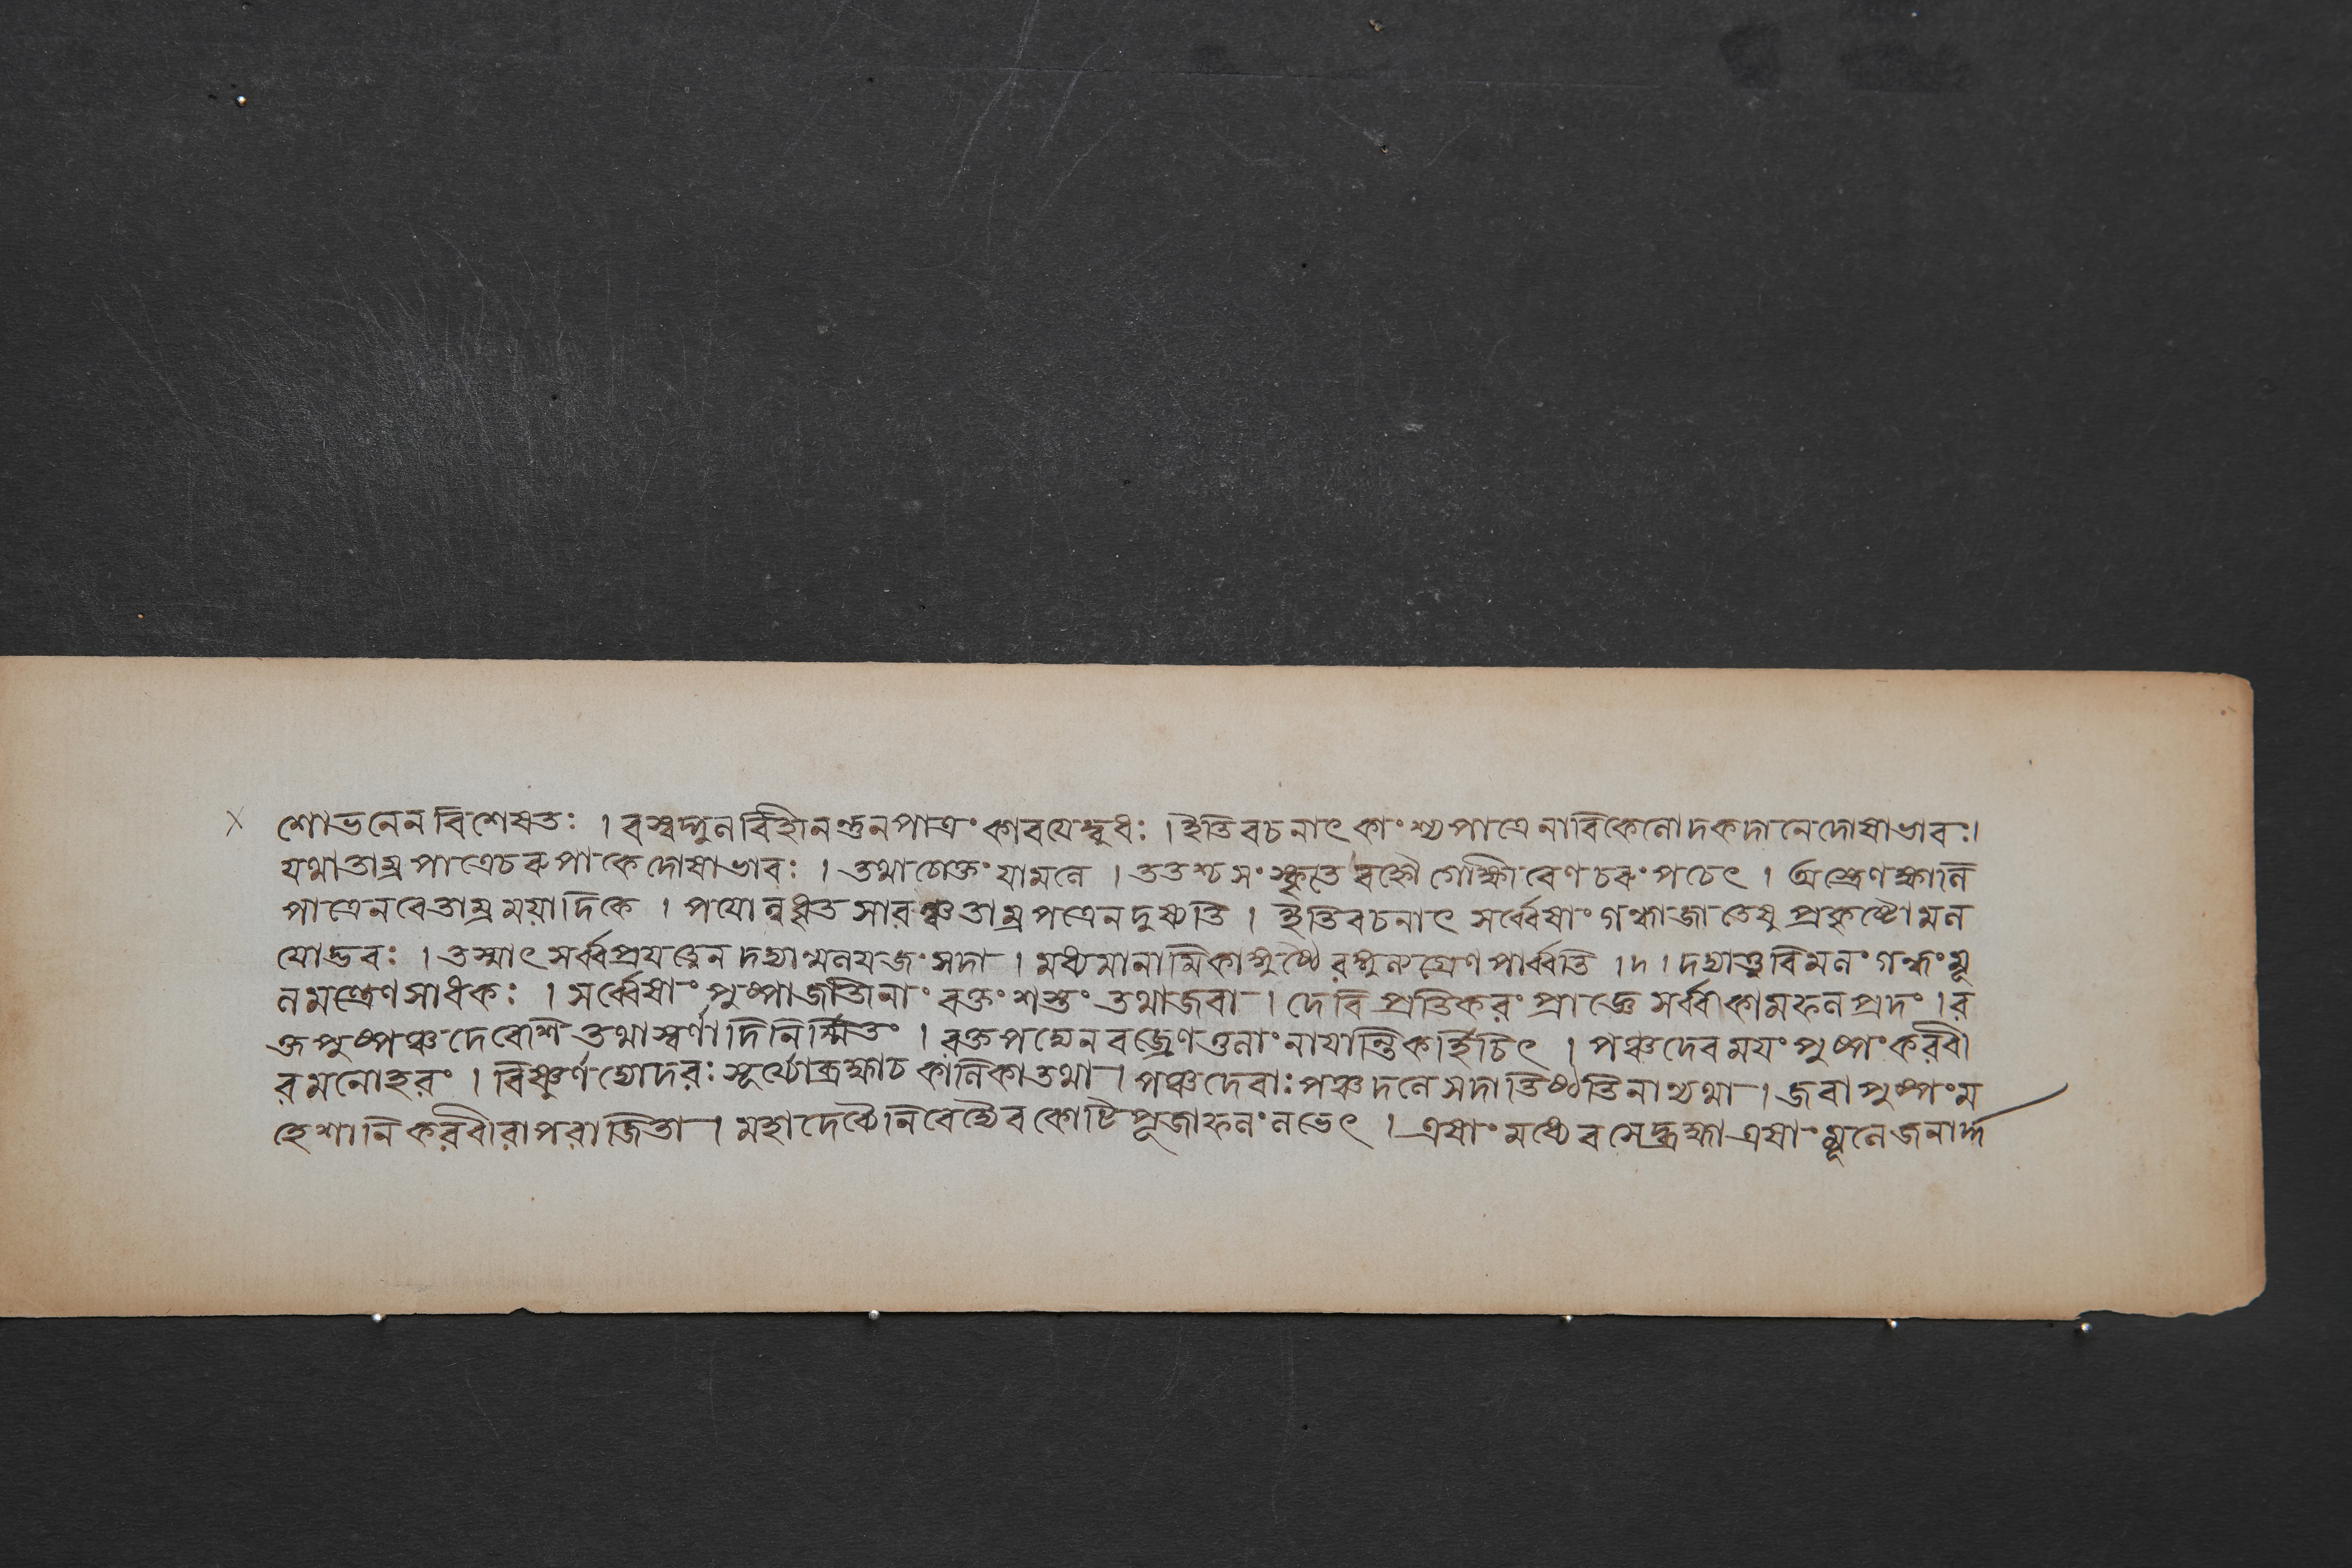 শোভনেন বিশেষতঃ । বস্বদ্গুন বিহীনন্তুন পাত্রং কারযেদ্বুধঃ । ইতি বচনাৎ কাংশ্য পাত্রে নারিকেলোদকদানে দোষাভাবঃ ।
যথা তাম্র পাত্রে চরুপাকে দোষাভাবঃ । তথা চোক্তং যামলে । ততশ্চ সংস্কৃতে বহ্নৌ গোক্ষীরেণ চরুং পচেৎ । অস্ত্রেণ ক্ষালিত
পাত্রে নবে তাম্রময়াদিকে । পযোনুধৃত সারঞ্চ তাম্র পত্রে ন দুষ্যতি । ইতি বচনাৎ সর্ব্বেষাং গন্ধাজাতেষু প্রকৃষ্টো মল
যোদ্ভবঃ । তস্মাৎ সর্ব্বপ্রযত্নেন দদ্যান্মলযজং সদা । মধ্যমানামিকাঙ্গুষ্ঠৈরঙ্গুলগ্রেণ পার্ব্বতি । দ । দদ্যাত্তু বিমলং গন্ধং মূ
লমন্ত্রেণ সাধকঃ । সর্ব্বেষাং পুষ্পাজাতিনাং রক্তং শস্তং তথা জবা । দেবি প্রতিকরং প্রাজ্ঞে সর্ব্বকামফলপ্রদং । র
ক্তপুষ্পঞ্চ দেবেশি তথা স্বর্ণাদিনির্ম্মিতং । রক্তপদ্মে ন বজ্রেণ তুলাং নাযান্তি কর্হিচিৎ । পঞ্চদেবময়ং পুষ্পং করবী
র মনোহরং । বিষ্ণুর্গদ্যোদরঃ সূর্য্যো ব্রহ্মা চ কালিকা তথা । পঞ্চদেবাঃ পঞ্চদলে সদা তিষ্ঠতি নান্যথা । জবা পুষ্পং ম
হেশানি করবীরাপরাজিতা । মহাদেব্যৈ নিবেদ্যৈব কোটিপূজাফলং লভেৎ । এষাং মধ্যে বসেদ্ব্রহ্মা এষাং মূলে জনার্দ্দ